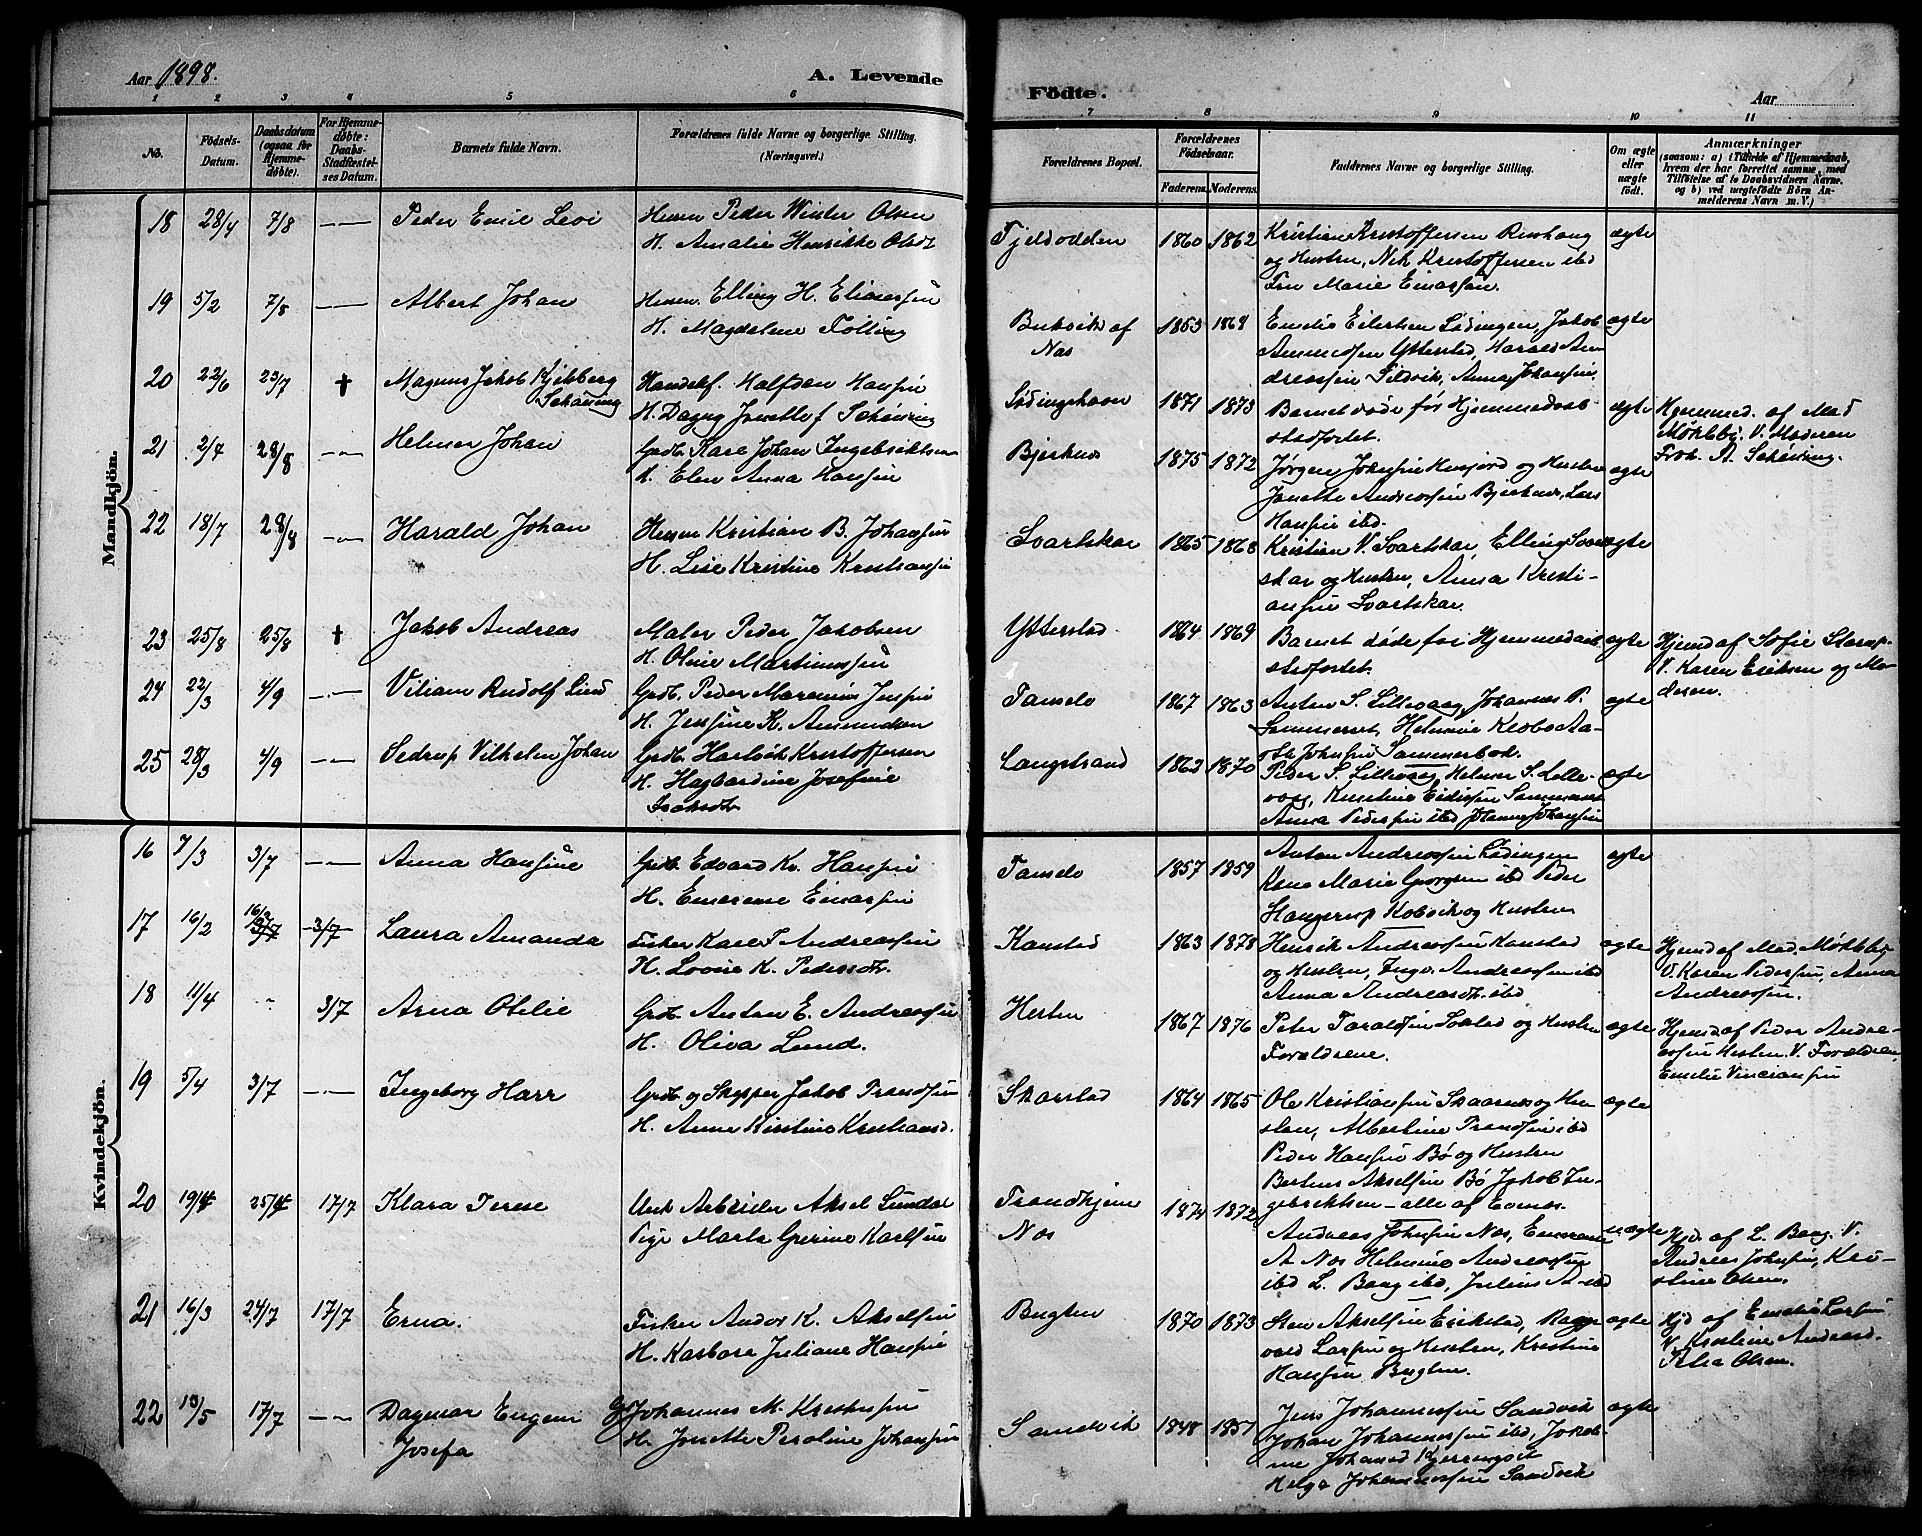 Aar 1898.
A. Levende
Födte.
Aar
1 2 3 4 5 6
7 8 9 10 11
No.
Födsels-
Datum.
Daabsdatum
(ogsaa for
Hjemme-
døbte).
For Hjemme-
døbte:
Daabs-
Stadfæstel-
ses Datum.
Barnets fulde Navn.
Forældrenes fulde Navne og borgerlige Stilling.
(Næringsvei.)
Forældrenes Bopæl.
Forældrenes
Födselsaar.
Faderens. Moderens.
Faddernes Navne og borgerlige Stilling.
Om ægte
eller
uægte
født.
Anmærkninger
(saasom: a) i Tilfælde af Hjemmedaab,
hvem der har forrettet samme, med
Tilföielse af to Daabsvidners Navne,
og b) ved uegtefödte Börn An-
melderens Navn m. V.)
Mandkjön.
18 28/4 7/8 —„— Peder Emil Levi
Peder Winter Olsen
H. Amalie Henrikke Olsdt
Fjeldodden 1860 1862
Kristian Kristoffersen
og Hustru, Kristoffersen ibd
Marie Einarsen.
ægte
19 5/2 7/8 —„— Albert Johan
Elling H. Eliassen
H. Magdalene
Bukvik af
Næs
1853
Emelie Eilertsen Lødingen, Jakob
Ytterstad, Harald An-
dreassen, Anna Johansen
ægte
20 22/6 23/7 † Magnus Jakob Kjelsberg
Schåning
Handelsf. Halfdan Hansen
H. Dagny Schåning
Lødingshavn 1871 1873
Barnet døde før Hjemmedaab
stadfæstet.
ægte
Hjemmed. af Mad
Møkleby. V. Moderen
Frøk. A. Schåning.
21 2/4 28/8 —„— Helmer Johan
Grdb. Karl Johan Ingebriktsen
H. Elen Anna Hansen
Bjerknes 1875 1872
Jørgen Johnsen Husjord og Hustru
Janette Andreassen Bjerknes, Lars
Hansen ibd.
ægte
22 18/7 28/8 —„— Harald Johan
Kristian B. Johansen
H. Lise Kristine Kristiansen
Svartskar 1865 1868
Kristian V. Svartskar, Elling Svart-
skar og Hustru, Anna Kristi-
ansen Svartskar.
ægte
23 25/8 25/8 † Jakob Andreas
Maler Peder Jakobsen
H. Oline Martinussen
Ytterstad 1864 1869
Barnet døde før Hjemmedaab
stadfæstet.
ægte
Hjemd af Sofie
V. Karen Eriksen og Mo-
deren.
24 22/3 4/9 —„— Viliam Rudolf Lind
Grdb. Peder Marenius Jensen
H. Jensine K. Amundsen
Tanselv 1867 1863
Anton S. Lillevaag, Johannes P.
Sommerset, Helmine
Johnsen
ægte
25 28/3 4/9 —„— Sedrup Vilhelm Johan
Grdb. Hartvik Kristoffersen
H. Hagbardine Josefine
Isaksdt.
Langstrand 1862 1870
Peder S. Lillevaag Helmer S. Lille-
vaag, Kristine
Anna Pedersen ibd Johanne Johansen
ægte
Kvindekjön.
16 7/3 3/7 —„— Anna Hansine
Grdb. Edvard Kr. Hansen
H. Emerense Einarsen
Tanselv 1857 1859
Anton Andreassen Lødingen
Marie Georgsen ibd Peder
Haugerup Kobvik og Hustru
ægte
17 16/2 16/2 3/7 3/7 Laura Amanda
Fisker Karl J. Andreassen
H. Lovise K. Pedersdt.
Kanstad 1863 1878
Henrik Andreassen Kanstad
og Hustru, Inga Andreassen ibd
Anna Andreasdt. ibd
ægte
Hjemd af Mad. Møkleby
V. Karen Pedersen, Anna
Andreassen.
18 11/4 „ 3/7 Arna Otelie
Grdb. Anton E. Andreassen
H. Oliva Lund.
Hesten 1867 1876
Peter Taraldsen og Hustru
Forældrene.
ægte
Hjemd af Peder Andre-
assen Hesten. V. Forældrene,
Emelie
19 5/4 3/7 —„— Ingeborg Harr
Grdb og Skipper Jakob Trondsen
H. Anne Kirstine Kristiansd.
Skarstad 1864 1865
Ole Kristiansen Skaarnes og Hu-
stru, Albertine Trondsen ibd
Peder Hansen Bø og Hustru
Bertine Akselsen Bø Jakob In-
gebriktsen – alle af Evenes.
ægte
20 19/4 25/4 17/7 Klara Terese
Ungk Arbeider Aksel Sundal
Pige Marta Gurine Karlsen
Trondhjem
Næs
1874 1872
Andreas Johnsen Næs, Emma
A Næs Helmine Andreassen
ibd L. Bang ibd, Julius A- ibd
uægte
Hjd. af L. Bang. V.
Andreas Johnsen, Kri-
stine Olsen.
21 16/3 24/7 17/7 Erna.
Fisker Andor K. Akselsen
H. Karbara Juliane Hansen
Bugten 1870 1873
Sten Akselsen Erikstad, Ragn-
vard Larsen og Hustru, Kristine
Hansen Bugten.
ægte
Hjd af Emelie Larsen
V. Kristine Andreasd.
Petra Olsen.
22 10/5 17/7 —„— Dagmar Eugeni
Josefa
G Johannes M. Kristensen
H. Jonette Peroline Johansen
Sandvik 1848 1851
Jens Johannessen Sandvik
Johan Johannessen ibd, Jakob-
ine Johansd
Helga Johannessen Sandvik
ægte